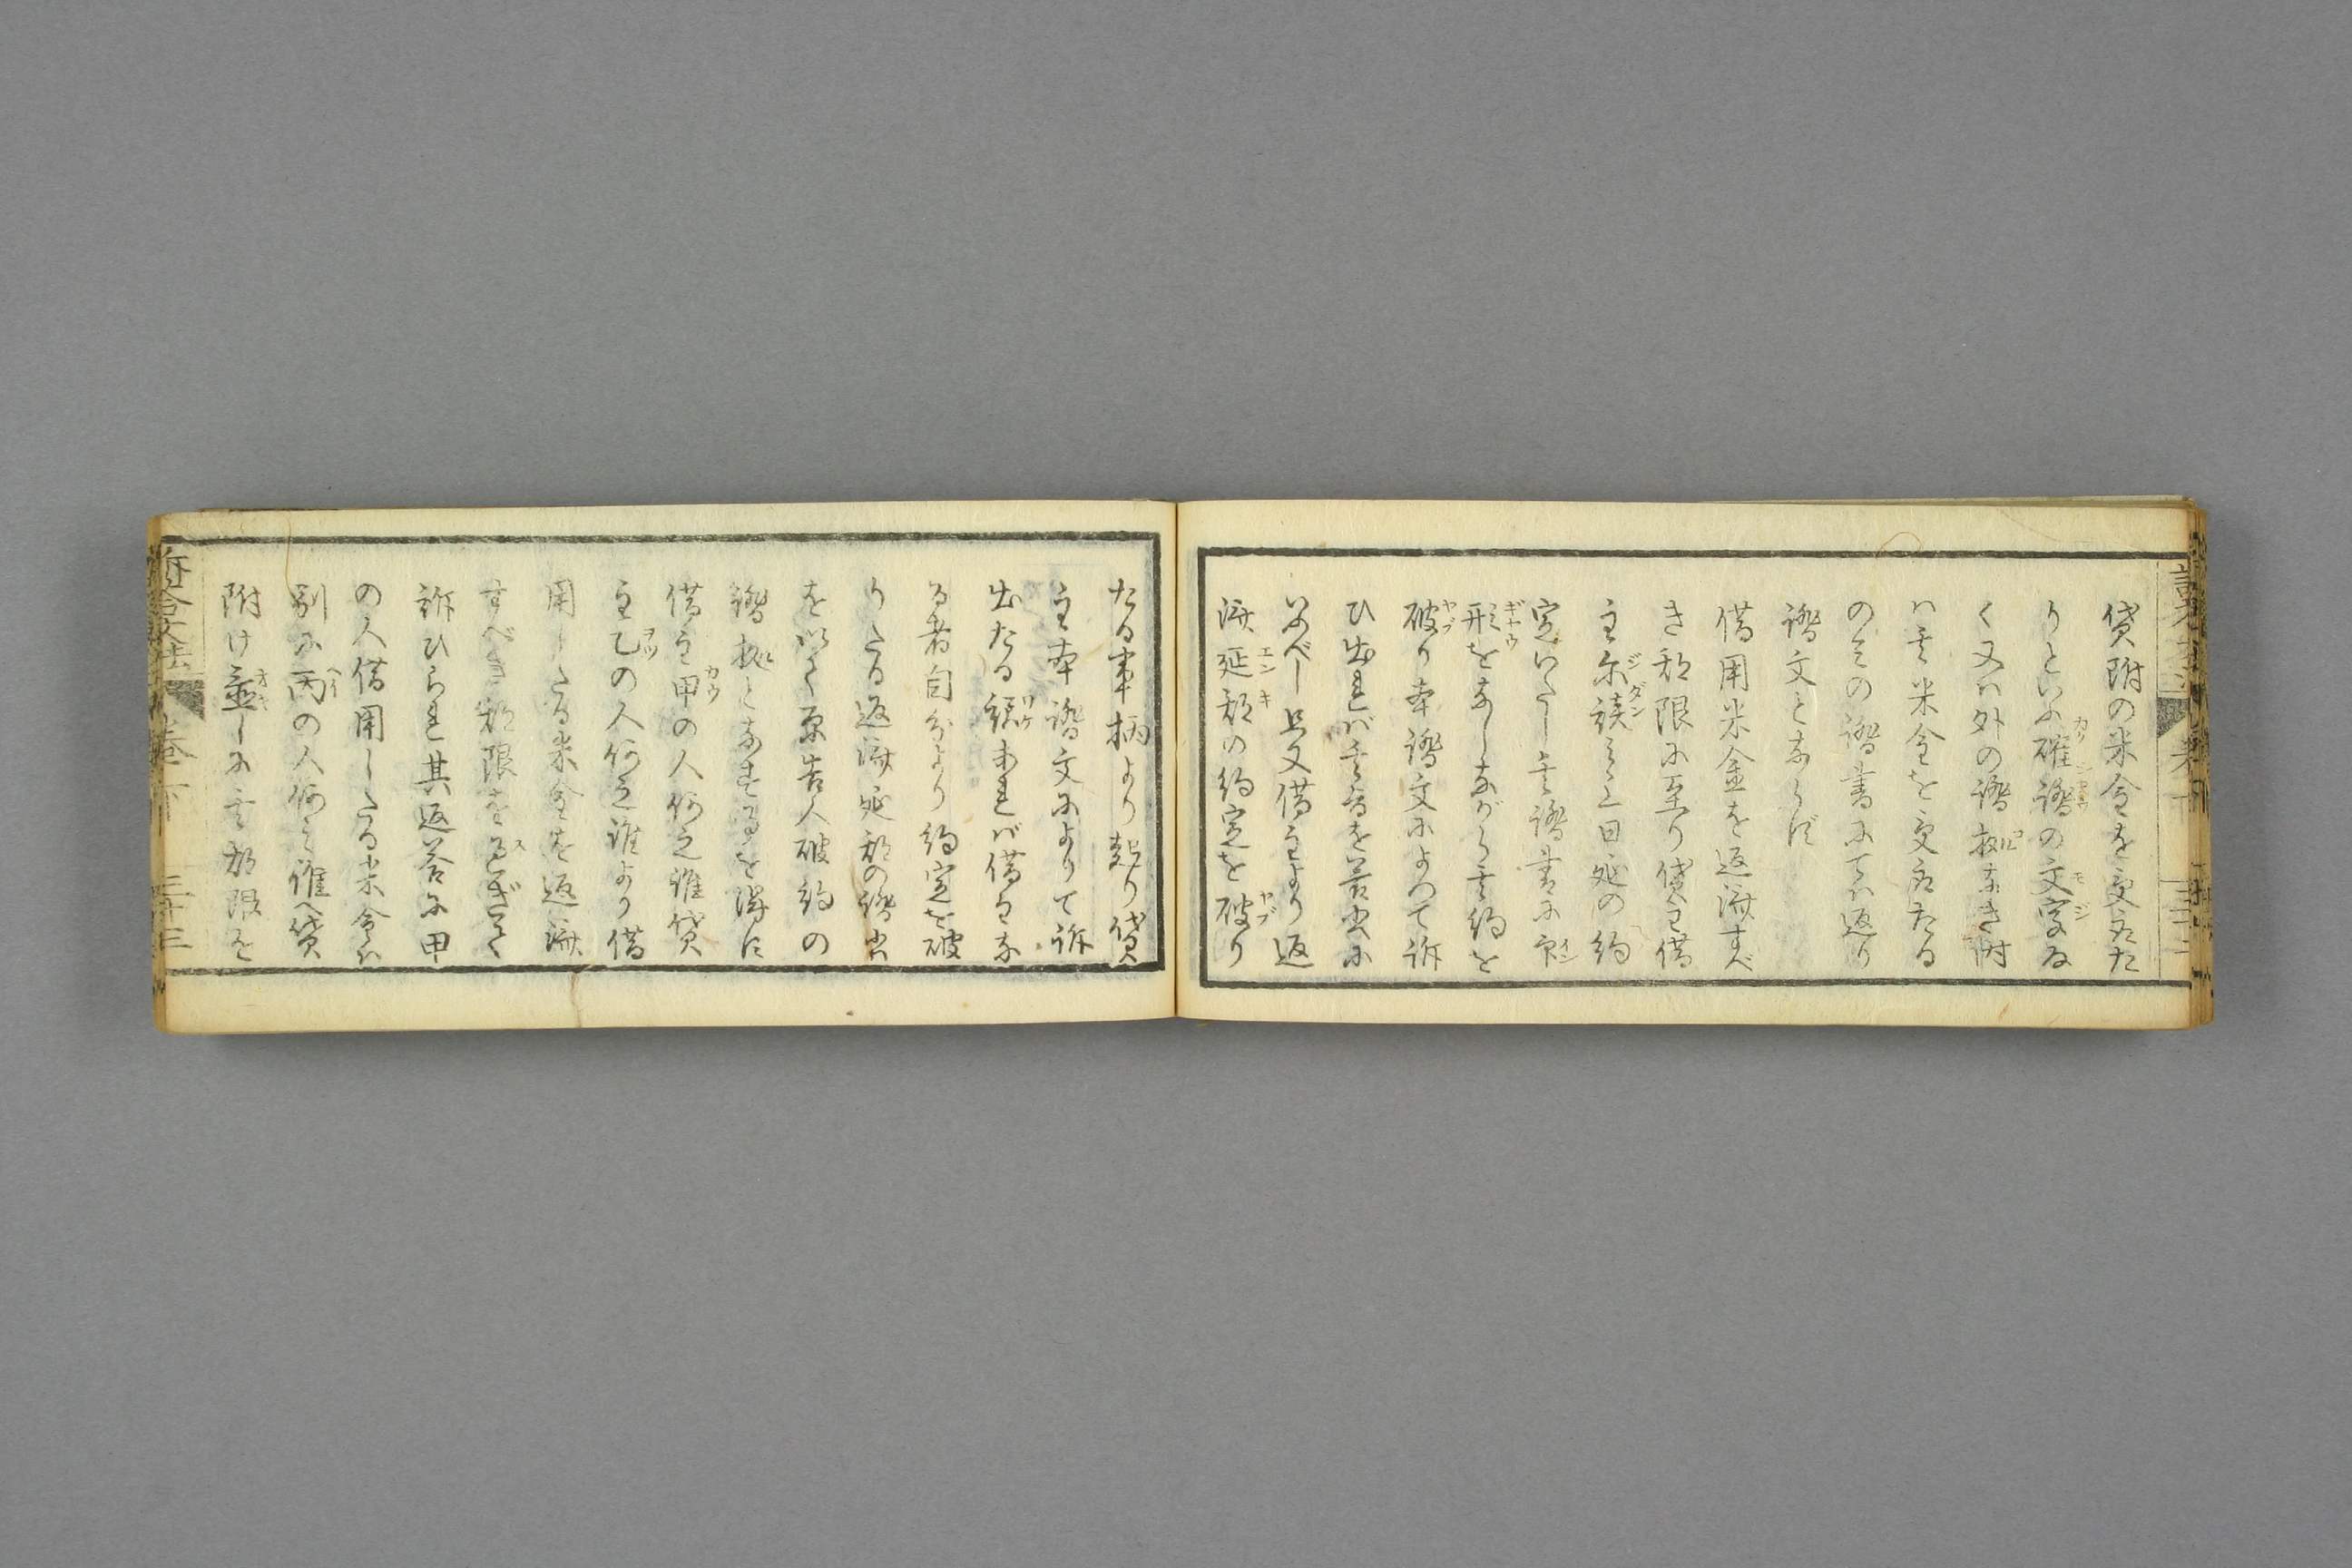 貸附の米金を受取た
りといふ確證の文字な
く又ハ外の證拠なき時
ハ其米金を受取たる
のみの證書にてハ返り
證文とならず
借用米金を返済すべ
き期限に至り貸主借
主示談之上日延の約
定いたし其證書に印
形をなしながら其約を
破り本證文によつて訴
ひ出れバ其旨を答書に
いふべし且又借主より返
済延期の約定を破り
たる事柄より起り貸
主本證文によりて訴
出たる譯あれバ借主な
る者自分より約定を破
りたる返済延期の證書
を以て原告人破約の
證拠となす事を得ば
借主甲の人何之誰貸
主乙の人何之誰より借
用したる米金を返済
すべき期限をすぎて
訴ひられ其返答に甲
の人借用したる米金ハ
別に丙の人何之誰へ貸
附け置しに其期限を